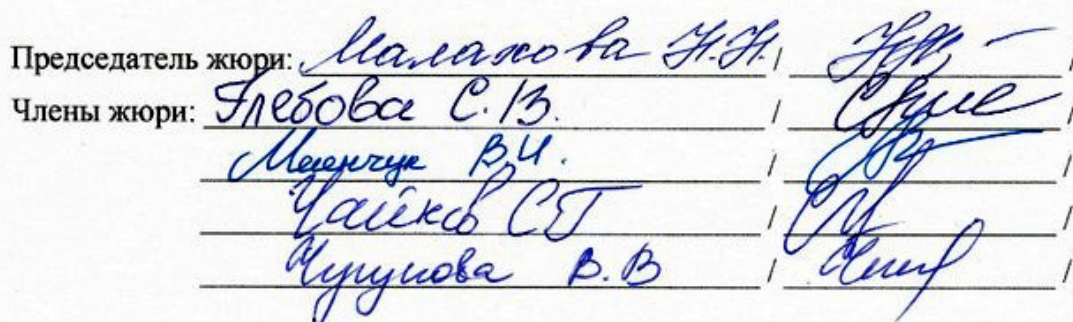 Председатель жюри: Малахова Н.Н. / /
Члены жюри: Глебова С.В. / /
В.И. / /
Чайков СГ / /
Чугунова В.В / /